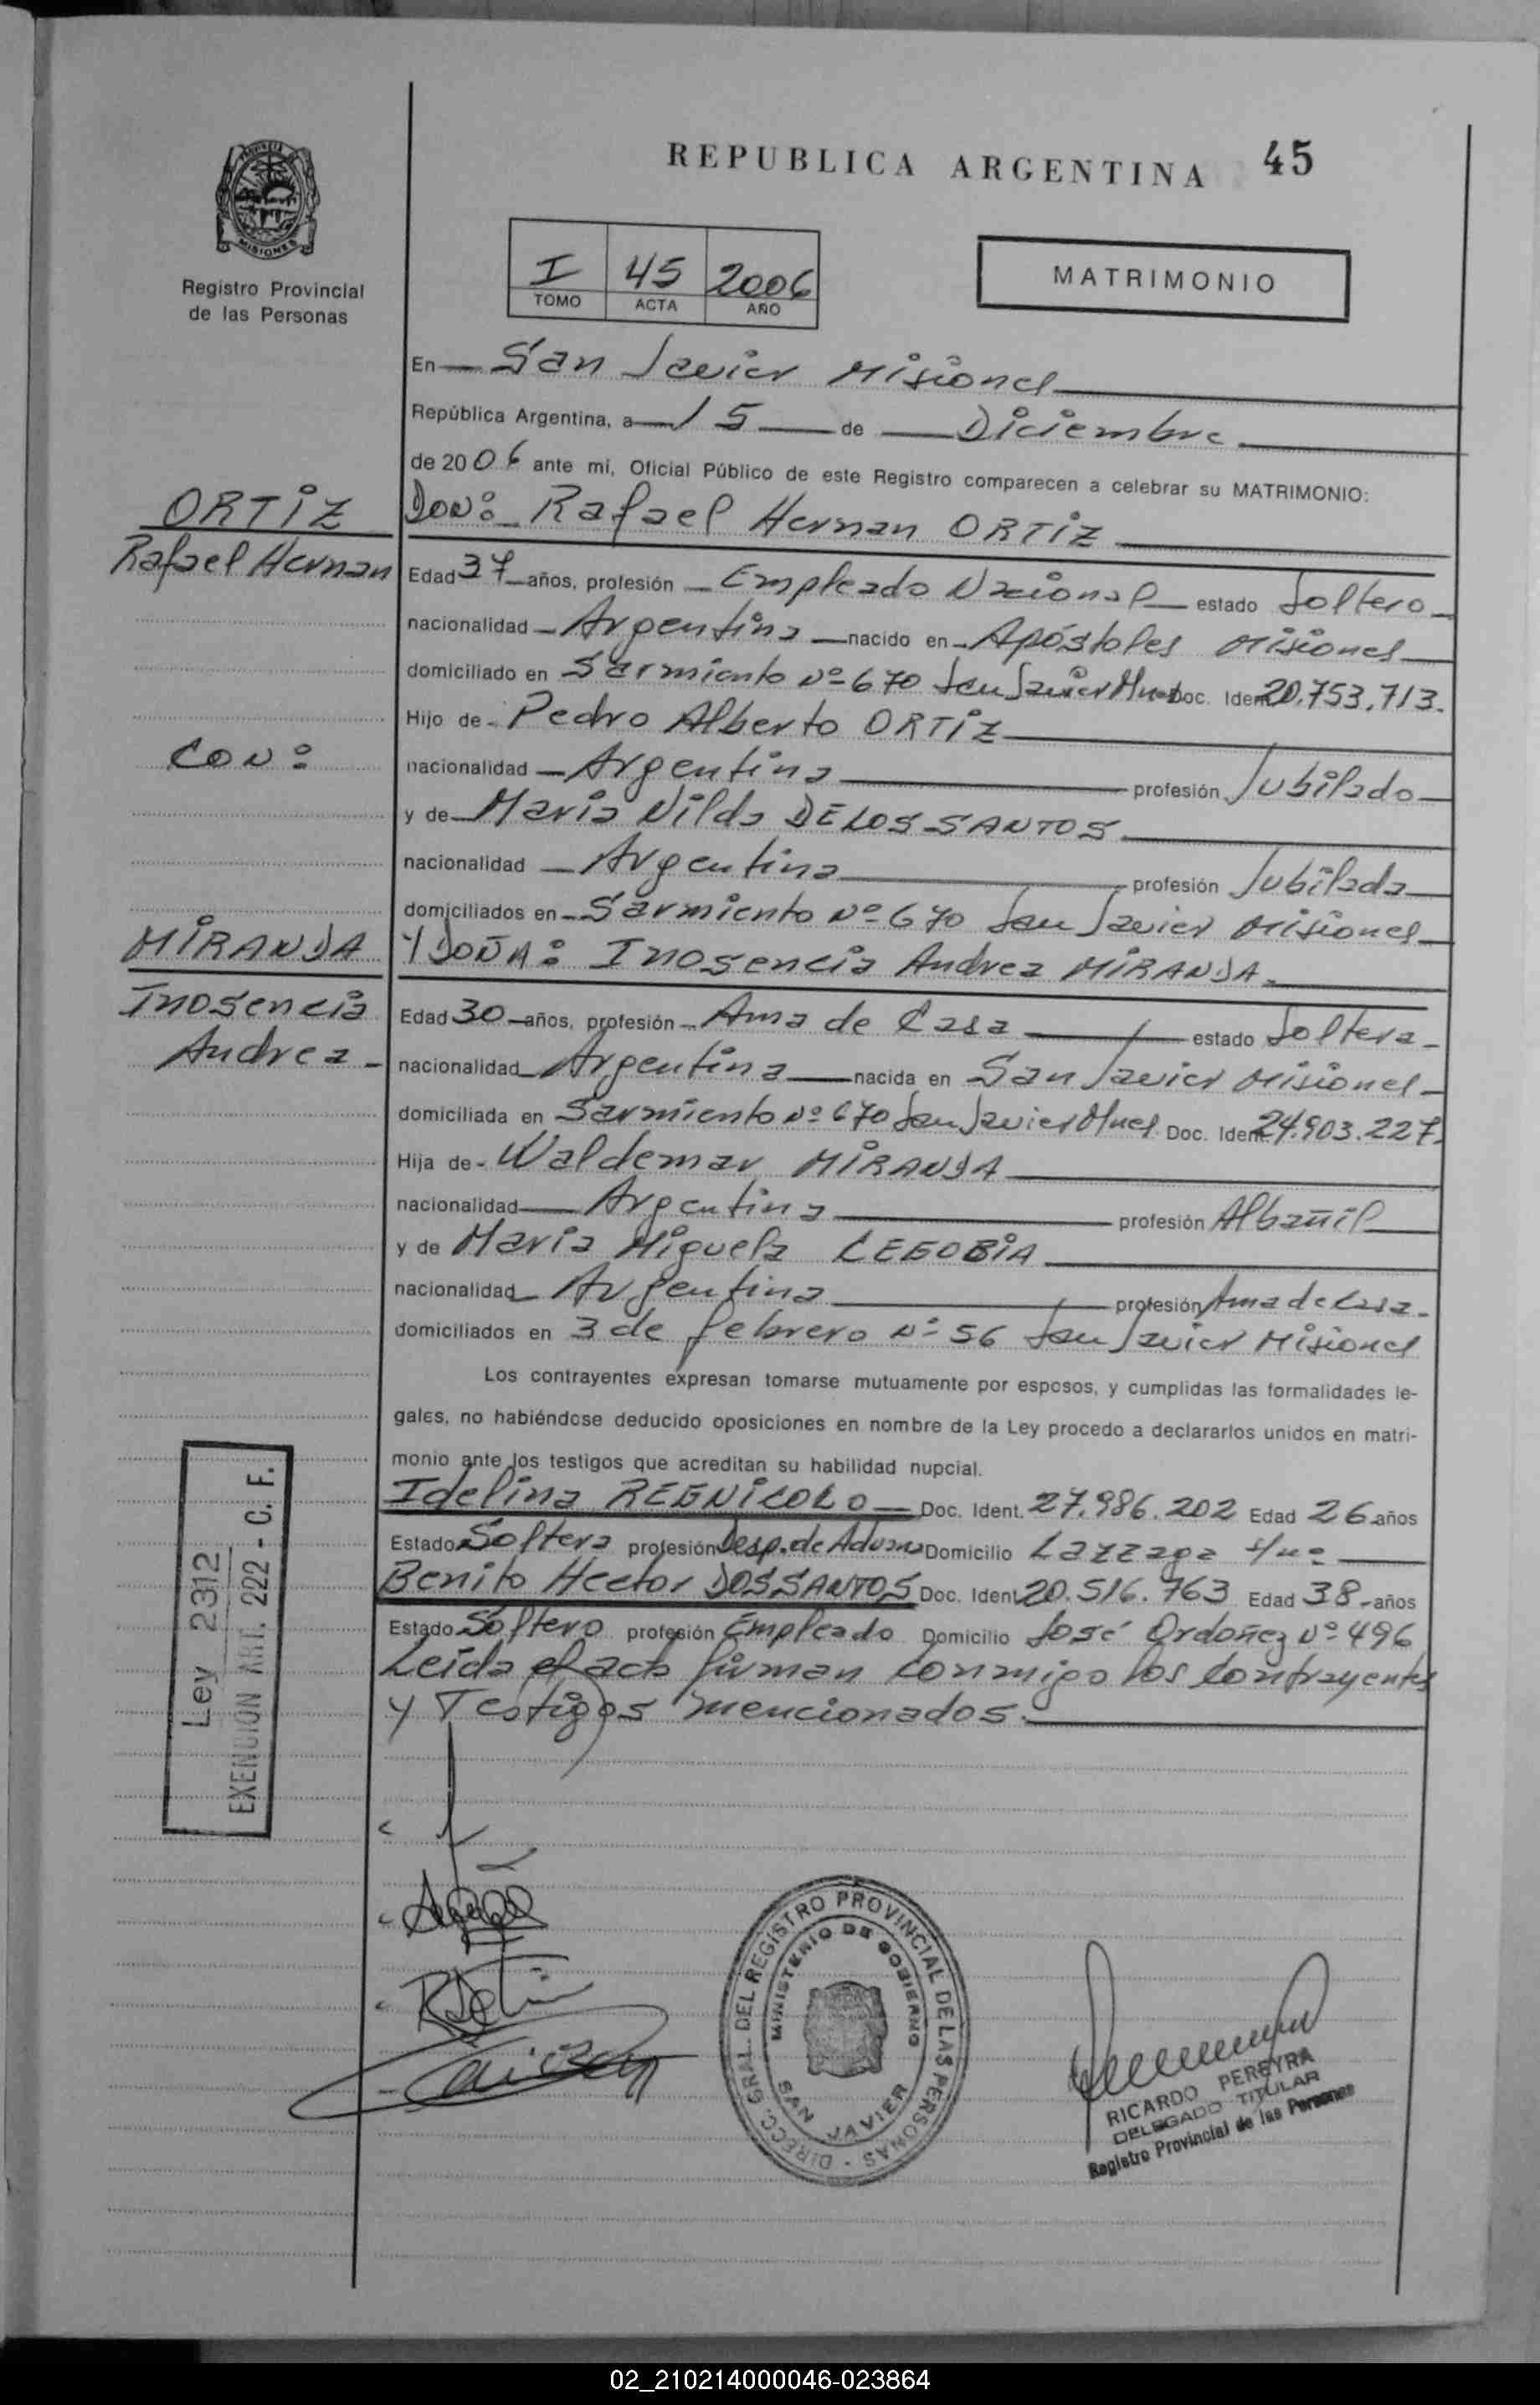 REPUBLICA ARGENTINA 45
MISIONES
Registro Provincial
de las Personas
I 45 2006
TOMO ACTA AÑO
MATRIMONIO
En San Javier Misiones
República Argentina, a 15 de Diciembre
de 2006 ante mi, Oficial Público de este Registro comparecen a celebrar su MATRIMONIO:
ORTIZ
Rafael Hernan
Don: Rafael Hernan ORTIZ
Edad 37 años, profesión Empleado Nacional estado Soltero
nacionalidad Argentina nacido en Apóstoles Misiones
domiciliado en Sarmiento Nº 670 San Javier Mnes Doc. Ident 20.753.713.
Hijo de Pedro Alberto ORTIZ
CON:
nacionalidad Argentina profesión Jubilado
y de Maria Nilda DELOSSANTOS
nacionalidad Argentina profesión Jubilada
domiciliados en Sarmiento Nº 670 San Javier Misiones
MIRANDA
Inosencia
Andrea
Y DOÑA: Inosencia Andrea MIRANDA
Edad 30 años, profesión Ama de Casa estado Soltera
nacionalidad Argentina nacida en San Javier Misiones
domiciliada en Sarmiento Nº 670 San Javier Mnes Doc. Ident 24.903.227.
Hija de Waldemar MIRANDA
nacionalidad Argentina profesión Albañil
y de Maria Miguela
nacionalidad Argentina profesión Ama de Casa
domiciliados en 3 de febrero Nº 56 San Javier Misiones
Los contrayentes expresan tomarse mutuamente por esposos, y cumplidas las formalidades le-
gales, no habiéndose deducido oposiciones en nombre de la Ley procedo a declararlos unidos en matri-
monio ante los testigos que acreditan su habilidad nupcial.
Idelina Doc. Ident. 27.986.202 Edad 26 años
Estado Soltera profesión Desp. de Aduana Domicilio s/nº
Benito Hector DOSSANTOS Doc. Ident 20.516.763 Edad 38 años
Estado Soltero profesión Empleado Domicilio José Ordoñez Nº 496
Leida el acta firman conmigo los Contrayentes
y Testigos mencionados.
Ley 2312
EXENCION ART. 222 - C. F.
DIRECC. GRAL. DEL REGISTRO PROVINCIAL DE LAS PERSONAS
MINISTERIO DE GOBIERNO
SAN JAVIER
RICARDO PEREYRA
DELEGADO TITULAR
Registro Provincial de las Personas
02_210214000046-023864